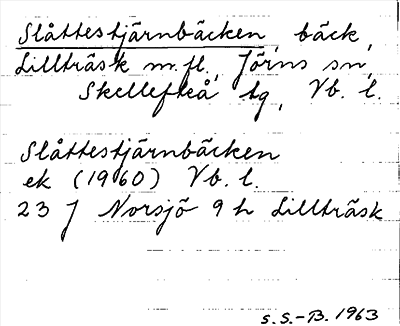 Slåttestjärnbäcken, bäck,
Lillträsk m.fl., Jörns sn,
Skellefteå tg, Vb. l.
Slåttestjärnbäcken
ek (1960) Vb. l.
23 J Norsjö 9 h Lillträsk
S.S.-B. 1963